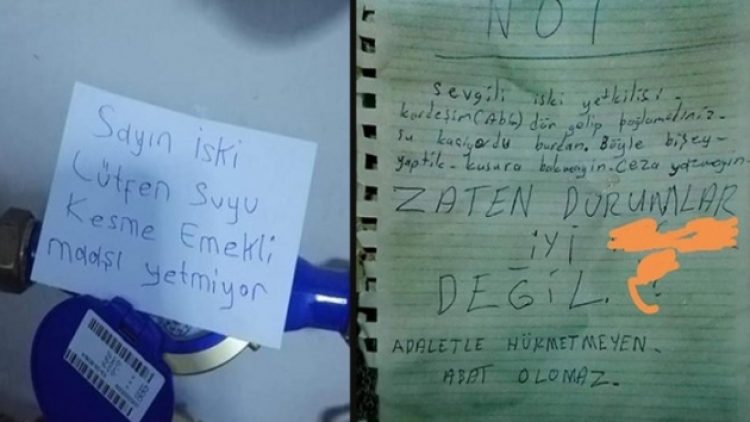 Sayın iski
Lütfen suyu
Kesme Emekli
maaşı yetmiyor
NOT
Sevgili iski yetkilisi-
kardeşim (Abla) dür gelip bağlamadınız-
su kaçıyordu burdan. Böyle bişey-
yaptık- kusura bakmayın. Ceza yazmayın.
ZATEN DURUMLAR
iYi
DEĞİL.
ADALETLE HÜKMETMEYEN.
ABAT OLOMAZ.